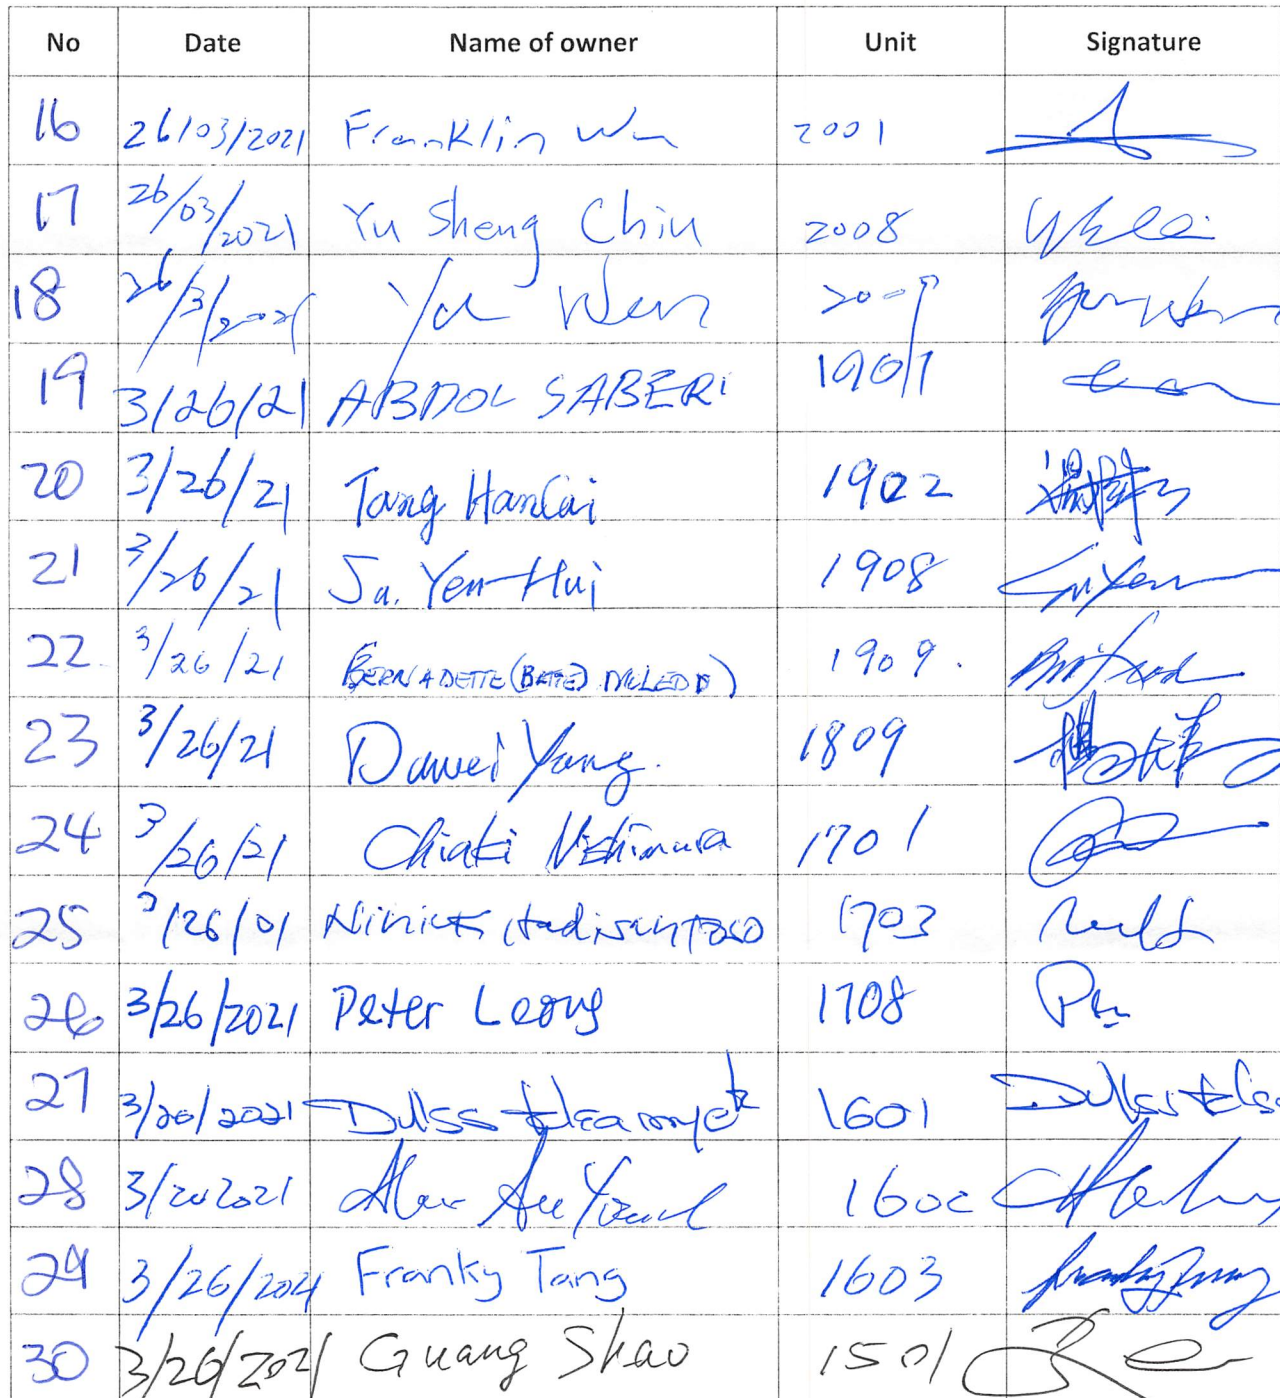 No Date Name of owner Unit Signature
16 26/03/2021 Franklin Wu 2001
17 26/03/2021 Yu Sheng Chiu 2008
18 26/3/2021 Yu Wen 2009
19 3/26/21 ABDOL SABERI 1901
20 3/26/21 Tang HanCai 1902
21 3/26/21 Su. Yen-Hui 1908
22 3/26/21 BERNADETTE 1909.
23 3/26/21 Dawei Yang. 1809 楊大伟
24 3/26/21 Chiaki Nishimura 1701
25 3/26/01 1703
26 3/26/2021 Peter Leong 1708
27 3/26/2021 1601
28 3/26 2021 Au Yeung 1602
29 3/26/2021 Franky Tang 1603 Franky Tang
30 3/26/2021 Guang Shao 1501